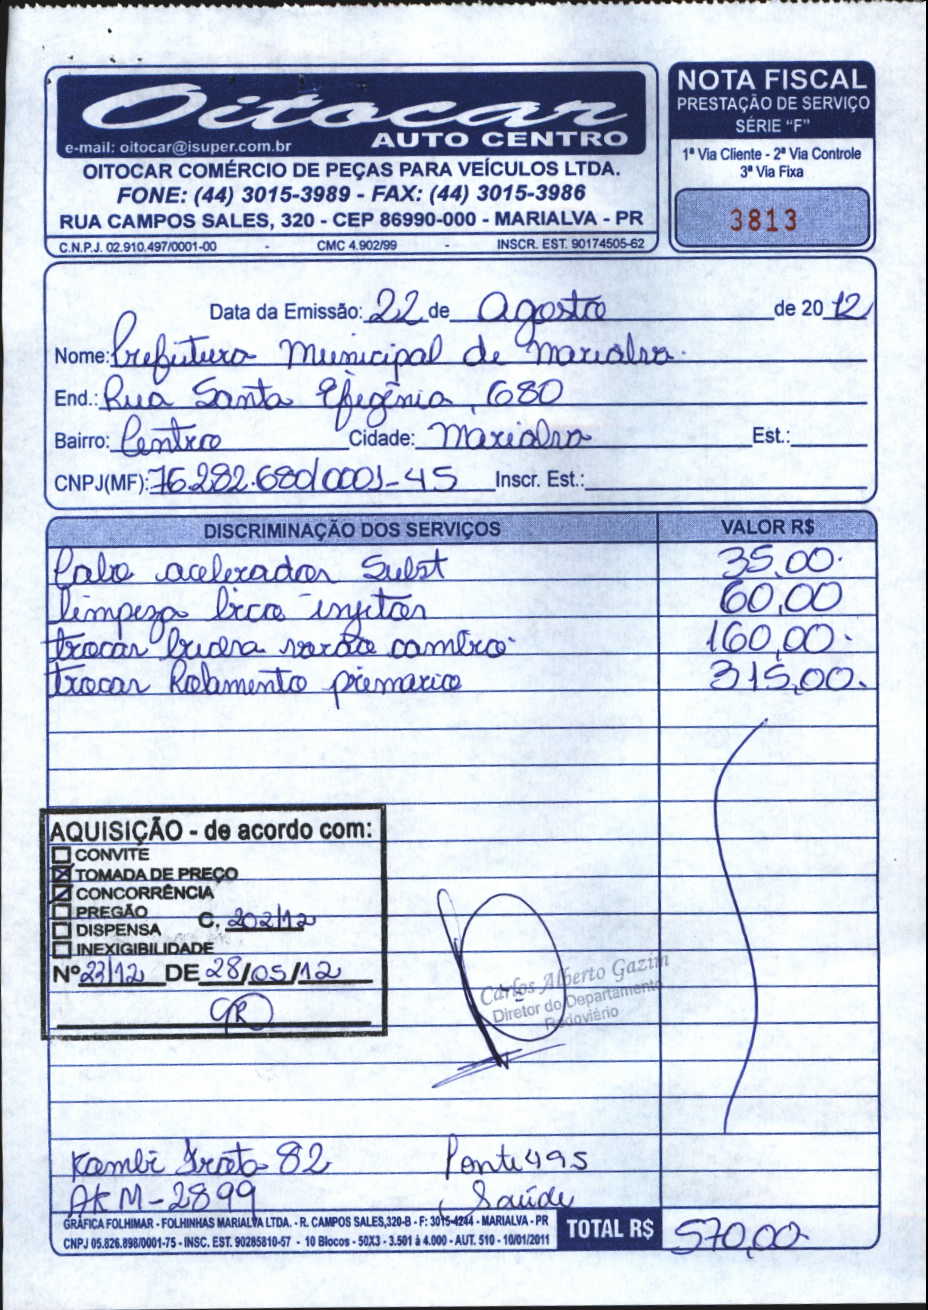 Oitocar
AUTO CENTRO
e-mail: oitocar@isuper.com.br
OITOCAR COMÉRCIO DE PEÇAS PARA VEÍCULOS LTDA.
FONE: (44) 3015-3989 - FAX: (44) 3015-3986
RUA CAMPOS SALES, 320 - CEP 86990-000 - MARIALVA - PR
C.N.P.J. 02.910.497/0001-00 - CMC 4.902/99 - INSCR. EST. 90174505-62
NOTA FISCAL
PRESTAÇÃO DE SERVIÇO
SÉRIE "F"
1ª Via Cliente - 2ª Via Controle
3ª Via Fixa
3813
Data da Emissão: 22 de Agosto de 2012
Nome: Prefeitura Municipal de Marialva.
End.: Rua Santa Efigênia, 680
Bairro: Centro Cidade: Marialva Est.:
CNPJ(MF): 76.282.680/0001-45 Inscr. Est.:
DISCRIMINAÇÃO DOS SERVIÇOS VALOR R$
Cabo acelerador Subst 35,00.
limpeza bico injetor 60,00
trocar bucha varão cambio 160,00.
trocar Rolamento primario 315,00.
AQUISIÇÃO - de acordo com:
CONVITE
TOMADA DE PREÇO
CONCORRÊNCIA
PREGÃO C. 202/12
DISPENSA
INEXIGIBILIDADE
Nº 23/12 DE 28/05/12
Carlos Alberto Gazim
Diretor do Departamento
Rodoviário
Kombi Frota 82 Ponte 495
AKM-2899 Saúde
GRÁFICA FOLHIMAR - FOLHINHAS MARIALVA LTDA. - R. CAMPOS SALES,320-B - F: 3015-4244 - MARIALVA - PR
CNPJ 05.826.898/0001-75 - INSC. EST. 90285810-57 - 10 Blocos - 50X3 - 3.501 à 4.000 - AUT. 510 - 10/01/2011
TOTAL R$ 570,00.